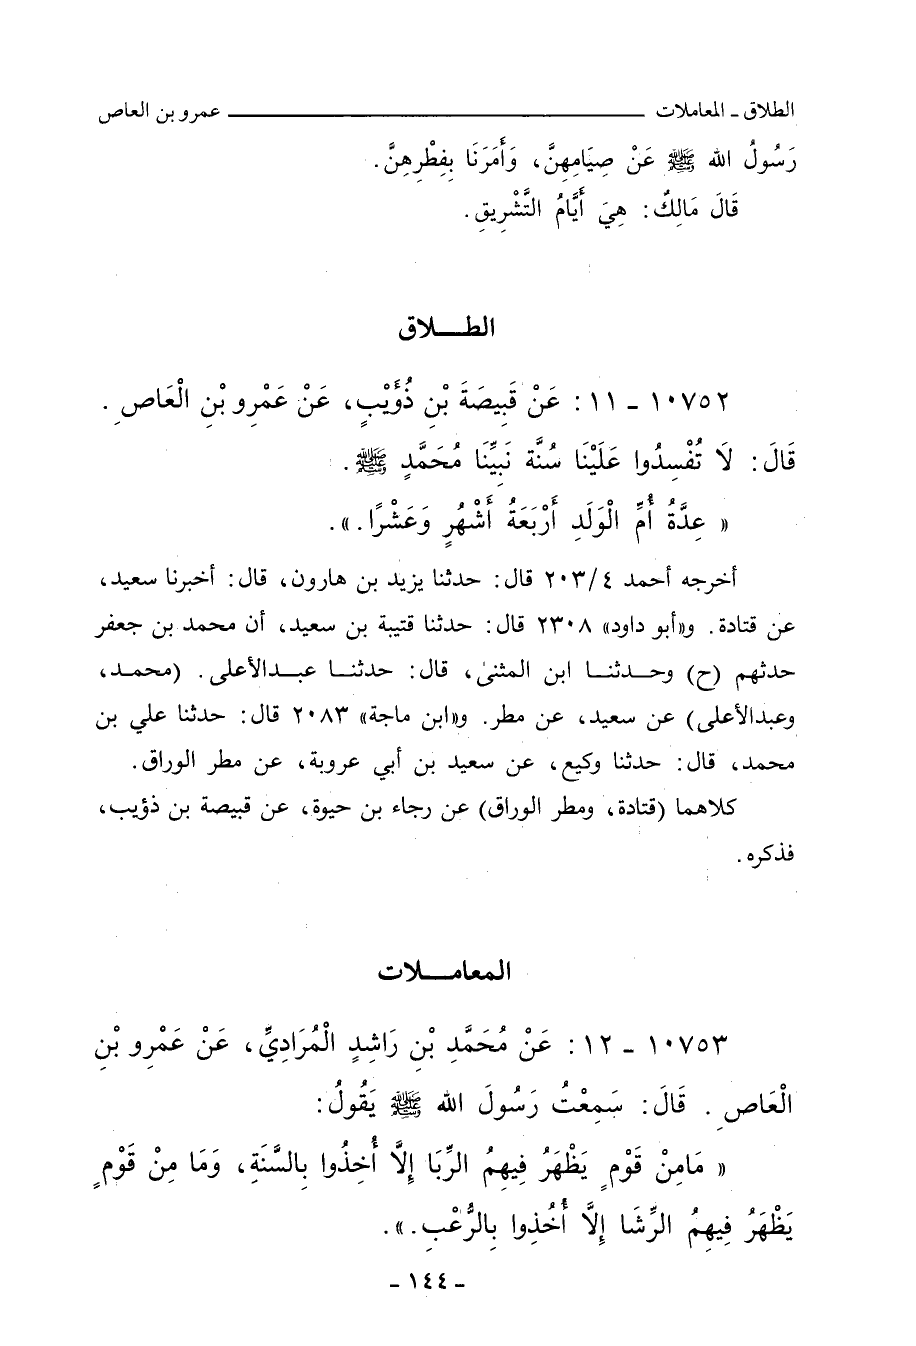 الطلاق ـ المعاملات ــــــــــــــــ عمرو بن العاص
رَسُولُ الله ﷺ عَنْ صِيَامِهِنَّ، وَأَمَرَنَا بِفِطْرِهِنَّ.
قَالَ مَالِكٌ: هِيَ أَيَّامُ التَّشْرِيقِ.
الطــلاق
١٠٧٥٢ ـ ١١: عَنْ قَبِيصَةَ بْنِ ذُؤَيْبٍ، عَنْ عَمْرِو بْنِ الْعَاصِ.
قَالَ: لَا تُفْسِدُوا عَلَيْنَا سُنَّةَ نَبِيِّنَا مُحَمَّدٍ ﷺ.
« عِدَّةُ أُمِّ الْوَلَدِ أَرْبَعَةُ أَشْهُرٍ وَعَشْرًا.».
أخرجه أحمد ٢٠٣/٤ قال: حدثنا يزيد بن هارون، قال: أخبرنا سعيد،
عن قتادة. و«أبو داود» ٢٣٠٨ قال: حدثنا قتيبة بن سعيد، أن محمد بن جعفر
حدثهم (ح) وحـدثنـا ابن المثنىٰ، قال: حدثنـا عبـدالأعلى. (محمـد،
وعبدالأعلى) عن سعيد، عن مطر. و«ابن ماجة» ٢٠٨٣ قال: حدثنا علي بن
محمد، قال: حدثنا وكيع، عن سعيد بن أبي عروبة، عن مطر الوراق.
كلاهما (قتادة، ومطر الوراق) عن رجاء بن حيوة، عن قبيصة بن ذؤيب،
فذكره.
المعامــلات
١٠٧٥٣ ـ ١٢: عَنْ مُحَمَّدِ بْنِ رَاشِدٍ الْمُرَادِيِّ، عَنْ عَمْرِو بْنِ
الْعَاصِ. قَالَ: سَمِعْتُ رَسُولَ الله ﷺ يَقُولُ:
« مَامِنْ قَوْمٍ يَظْهَرُ فِيهِمُ الرِّبَا إِلَّا أُخِذُوا بِالسَّنَةِ، وَمَا مِنْ قَوْمٍ
يَظْهَرُ فِيهِمُ الرِّشَا إِلَّا أُخِذُوا بِالرُّعْبِ.».
- ١٤٤ -